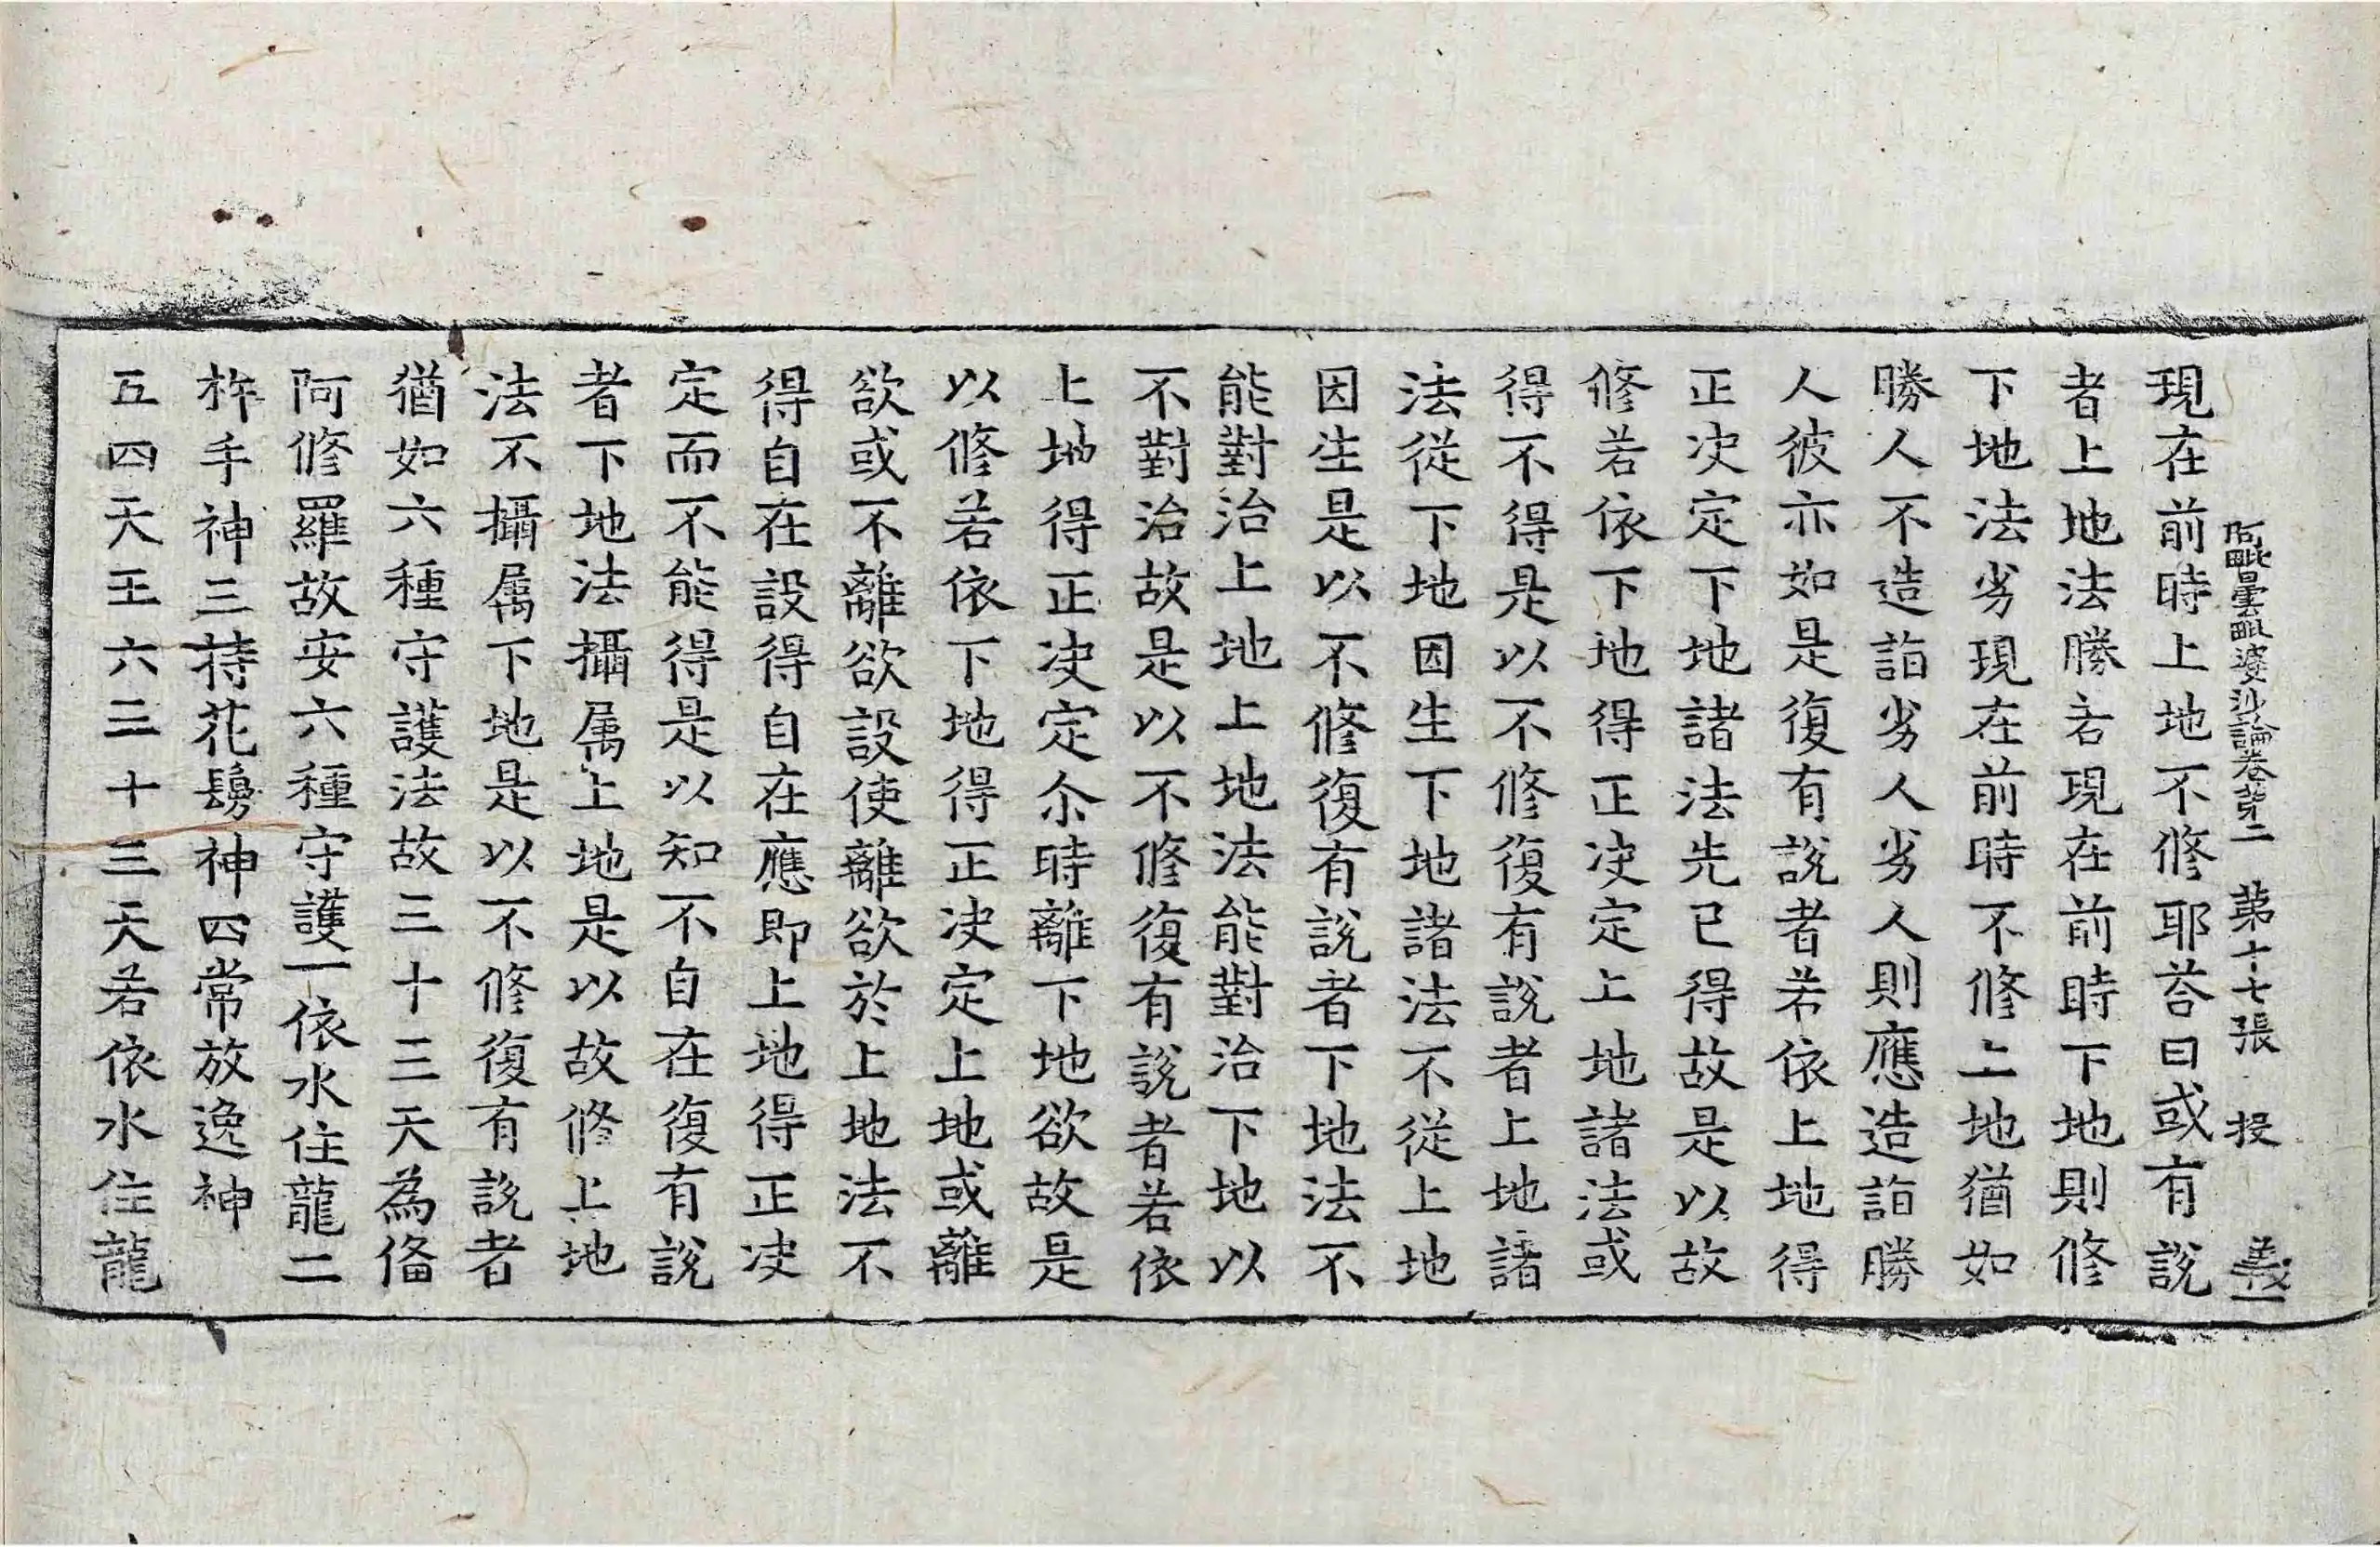 阿毗曇毗婆沙論卷苐二 苐十七張 投 義一
現在前時上地不修耶荅曰或有說
者上地法勝若現在前時下地則修
下地法劣現在前時不修上地猶如
勝人不造詣劣人劣人則應造詣勝
人彼亦如是復有說者若依上地得
正决定下地諸法先已得故是以故
修若依下地得正决定上地諸法或
得不得是以不修復有說者上地諸
法從下地因生下地諸法不從上地
因生是以不修復有說者下地法不
能對治上地上地法能對治下地以
不對治故是以不修復有說者若依
上地得正决定尒時離下地欲故是
以修若依下地得正决定上地或離
欲或不離欲設使離欲於上地法不
得自在設得自在應即上地得正决
定而不能得是以知不自在復有說
者下地法攝属上地是以故修上地
法不攝属下地是以不修復有說者
猶如六種守護法故三十三天為俻
阿修羅故安六種守護一依水住龍二
杵手神三持花鬘神四常放逸神
五四天王六三十三天若依水住龍